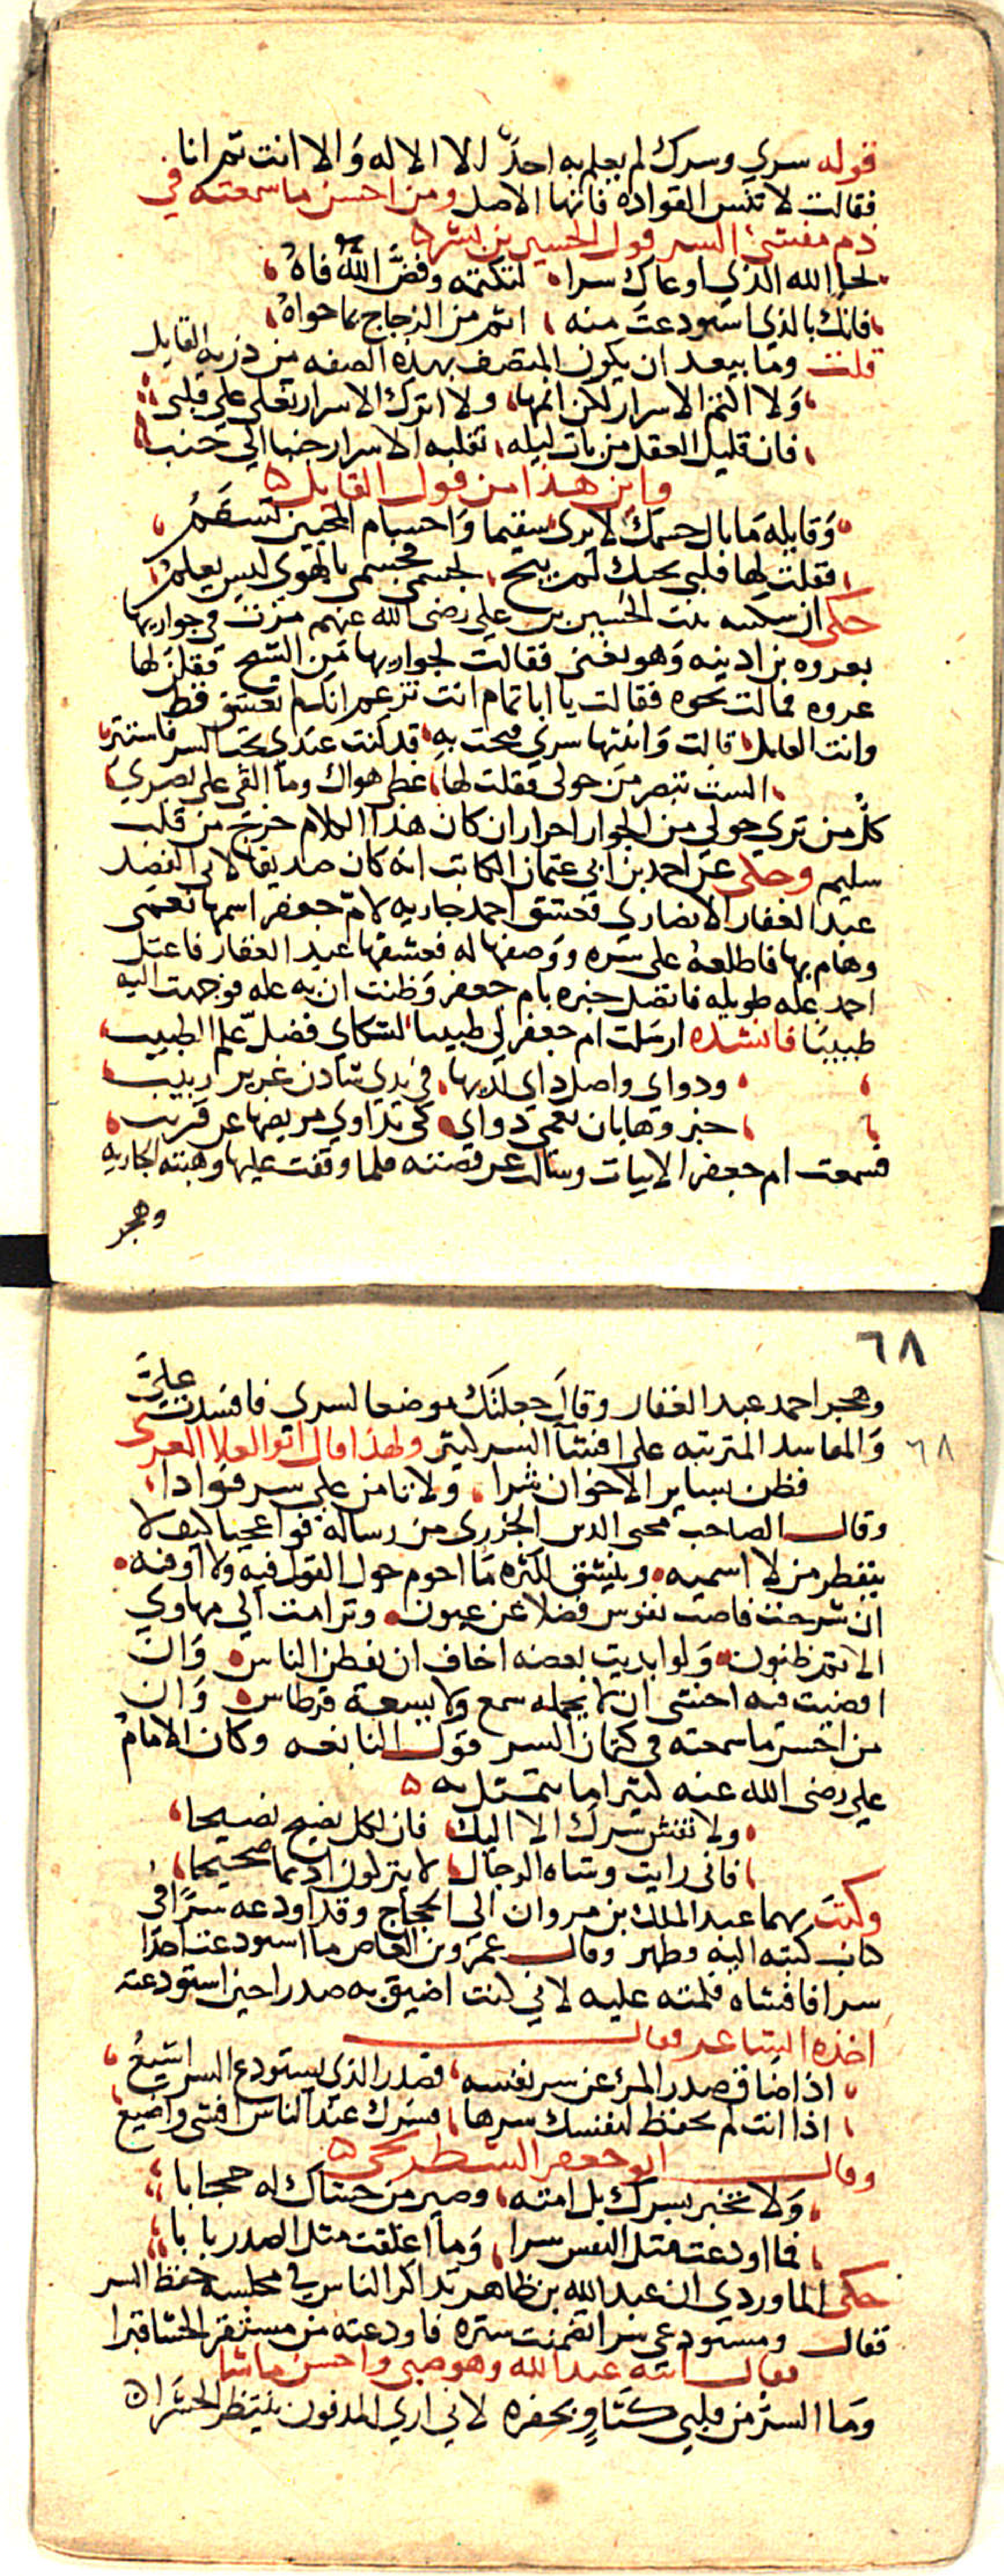 قوله سري وسرك لم يعلم به احد الا الاله والا انت ثم انا
فقالت لا تنس القواده فانها الاصل ومن احسن ما سمعته في
ذم مفشي السر قول الحسين بن بشر
لحا الله الذي اوعاك سرا لتكتمه وفض الله فاه
فانك بالذي استودعت منه انم من الزجاج بما حواه
قلت وما يبعد ان يكون المتصف بهذه الصفه من ذريه القايل
ولا اكتم الاسرار لكن انمها ولا اترك الاسرار تغلي على قلبي
فان قليل العقل من بات ليله تقلبه الاسرار جنبا الى جنب
واين هذا من قول القايل
وقايله ما بال جسمك لا يرى سقيما واجسام المحبين تسقم
فقلت لها قلبي بحبك لم يبح لجسمي فجسمي بالهوى ليس يعلم
حكى ان سكينه بنت الحسين بن علي رضي الله عنهم مرت في جواريها
بعروه بن اذينه وهو بفنى فقالت لجواريها من الشيخ فقلن لها
عروه فمالت نحوه فقالت يا ابا تمام انت تزعم انك لم تعشق قط
وانت القايل قالت وابثثتها سري فبحت به قد كنت عندي تحب الستر فاستتر
الست تبصر من حولي فقلت لها غطى هواك وما القى على بصري
كل من ترى حولي من الجوار احرار ان كان هذا الكلام خرج من قلب
سليم وحكى عن احمد بن ابي عثمان الكاتب انه كان صديقا لابي الفضل
عبد الغفار الانصاري فعشق احمد جاريه لام جعفر اسمها نعمى
وهام بها فاطلعه على سره ووصفها له فعشقها عبد الغفار فاعتل
احمد عله طويله فاتصل خبره بام جعفر وظنت ان به عله فوجهت اليه
طبيبا فانشده ارسلت ام جعفر لي طبيبا لتشكاي فضل علم الطبيب
ودواي واصل داي لديها في يدي شادن غرير ربيب
خبروها بان نعمى دواي كي تداوي مريضها عن قريب
فسمعت ام جعفر الابيات وسالت عن قصته فلما وقفت عليها وهبته الجاريه
وهجر
٦٨
وهجر احمد عبد الغفار وقال جعلتك موضعا لسري فافسدت علي
والمفاسد المترتبه على افشا السر كثير ولهذا قال ابو العلا المعري
٦٨
فظن بساير الاخوان شرا ولا تامن على سر فوادا
وقال الصاحب محيى الدين الجزري من رساله فواعجبا كيف لا
يتفطر من لا اسميه وينشق لكثره ما احوم حول القول فيه ولا اوفيه
ان شرحت فاضت نفوس فضلا عن عيون وترامت الى مهاوي
الاثم ظنون ولو ابديت بعضه اخاف ان يفطن الناس وان
افضيت فيه اخشى ان لا يحمله سمع ولا يسعه قرطاس وان
من احسن ما سمعته في كتمان السر قول النابغه وكان الامام
علي رضي الله عنه كثيرا ما يتمثل به
ولا تفش سرك الا اليك فان لكل نصيح نصيحا
فاني رايت وشاه الرجال لا يتركون اديما صحيحا
وكتب بهما عبد الملك بن مروان الى الحجاج وقد اودعه سرا في
كتاب كتبه اليه وظهر وقال عمرو بن العاص ما استودعت احدا
سرا فافشاه فلمته عليه لاني كنت اضيق به صدرا حين استودعته
اخذه الشاعر فقال
اذا ضاق صدر المرء عن سر نفسه فصدر الذي يستودع السر اضيق
اذا انت لم تحفظ لنفسك سرها فسرك عند الناس افشى واضيع
وقال ابو جعفر الشطرنجي
ولا تخبر بسرك بل امته وصير من حشاك له حجابا
فما اودعت مثل النفس سرا وما اغلقت مثل الصدر بابا
حكى الماوردي ان عبد الله بن طاهر تذاكر الناس في مجلسه حفظ السر
فقال ومستودعي سرا تضمنت ستره فاودعته من مستقر الحشا قبرا
فقال ابنه عبد الله وهو صبي واحسن ما شا
وما السر من قلبي كثاو بحفره لاني ارى المدفون ينتظر الحشرا